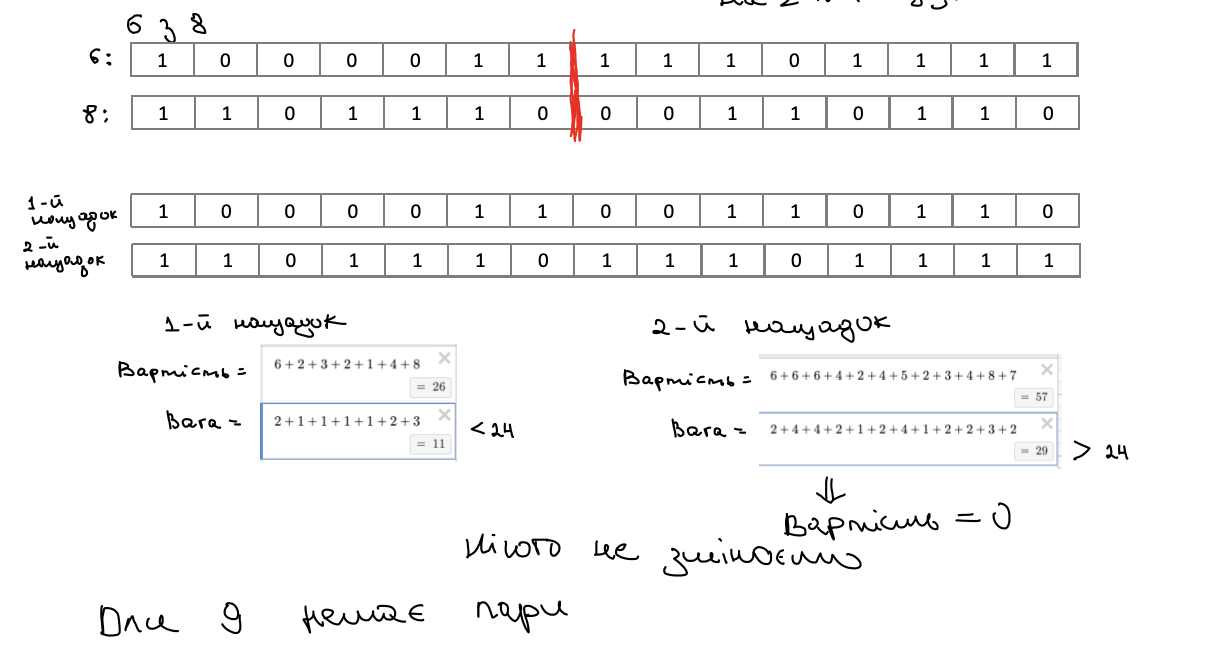 6 з 8
6: 1 0 0 0 0 1 1 1 1 1 0 1 1 1 1
8: 1 1 0 1 1 1 0 0 0 1 1 0 1 1 0
1-й нащадок 1 0 0 0 0 1 1 0 0 1 1 0 1 1 0
2-й нащадок 1 1 0 1 1 1 0 1 1 1 0 1 1 1 1
1-й нащадок
Вартість = 6+2+3+2+1+4+8
= 26
Вага = 2+1+1+1+1+2+3
= 11
< 24
2-й нащадок
Вартість = 6+6+6+4+2+4+5+2+3+4+8+7
= 57
Вага = 2+4+4+2+1+2+4+1+2+2+3+2
= 29
> 24
⇓
Вартість = 0
Нічого не змінюємо
Для 9 немає пари